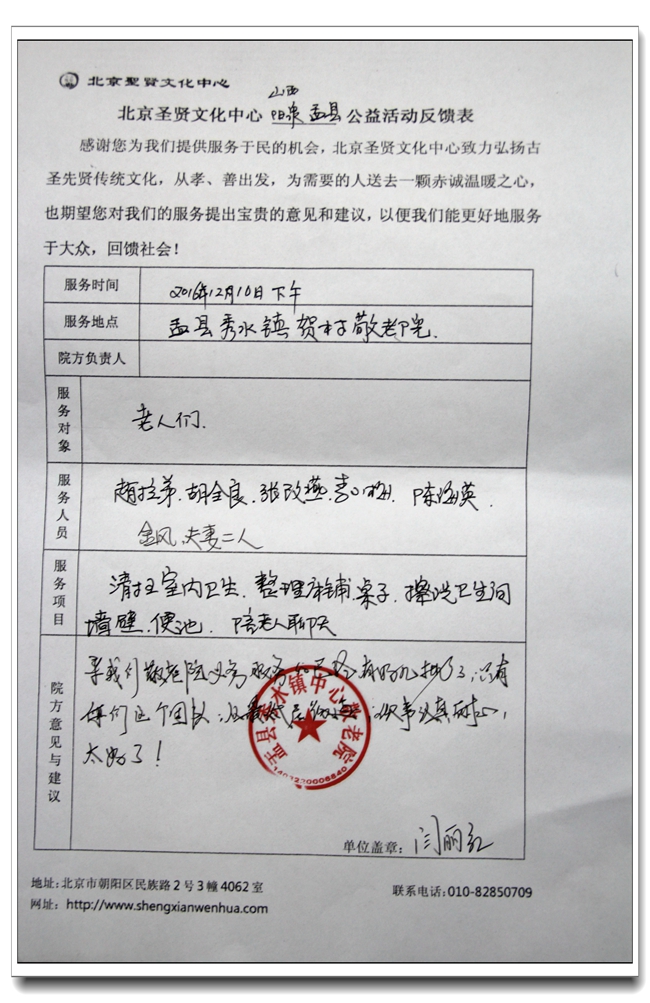 北京聖賢文化中心
山西
北京圣贤文化中心 阳泉 盂县 公益活动反馈表
感谢您为我们提供服务于民的机会，北京圣贤文化中心致力弘扬古
圣先贤传统文化，从孝、善出发，为需要的人送去一颗赤诚温暖之心，
也期望您对我们的服务提出宝贵的意见和建议，以便我们能更好地服务
于大众，回馈社会！
服务时间 2016年12月10日下午
服务地点 盂县秀水镇贺村敬老院.
院方负责人
服务对象 老人们.
服务人员 赵拉弟.胡全良.张改燕.李小梅.陈海英.
金凤.夫妻二人
服务项目 清扫室内卫生.整理床铺.桌子.擦洗卫生间
墙壁.便池.陪老人聊天
院方意见与建议 来我们敬老院义务服务的已经有好几批了，只有
你们这个团队，做事认真耐心，
太好了！
盂县秀水镇中心敬老院
单位盖章：闫丽红
地址：北京市朝阳区民族路2号3幢4062室 联系电话：010-82850709
网址：http://www.shengxianwenhua.com